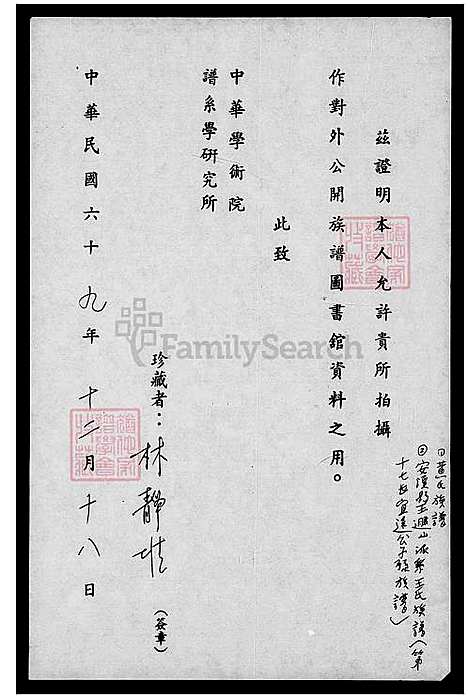 茲證明本人允許貴所拍攝
作對外公開族譜圖書舘資料之用。
此致
中華學術院
譜系學研究所
珍藏者：林靜
(簽章)
中華民國六十九年十二月十八日
族譜
安溪 山派 王氏族譜(第
十七 宜 公子孫族譜)
FamilySearch